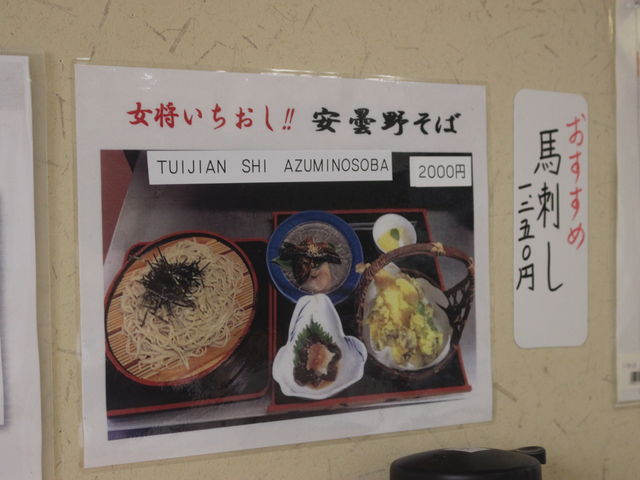 女将いちおし!! 安曇野そば
TUIJIAN SHI AZUMINOSOBA
2000円
おすすめ
馬刺し
一、二五〇円